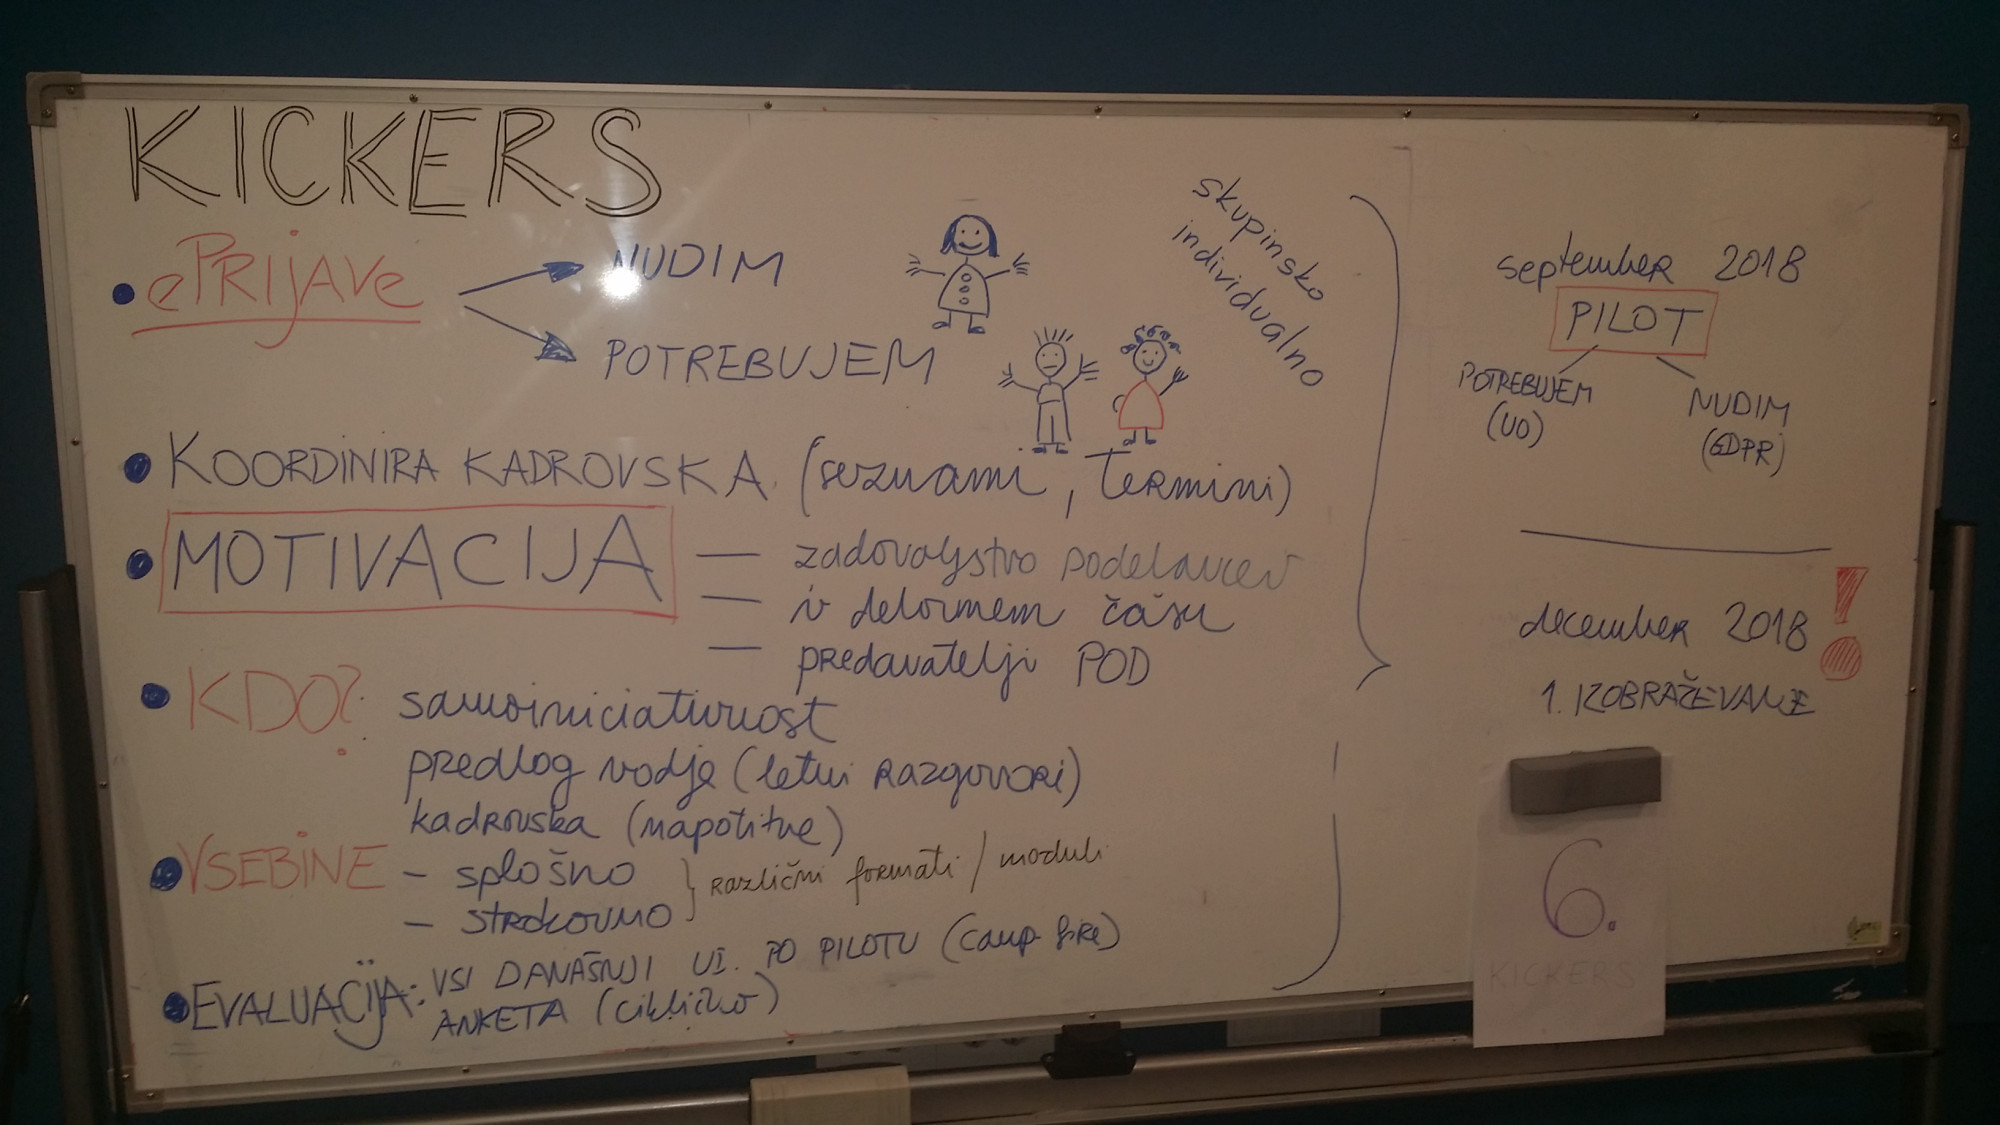 KICKERS
• ePRIJAVe
NUDIM
POTREBUJEM
skupinsko
individualno
• KOORDINIRA KADROVSKA (seznami, termini)
• MOTIVACIJA
— zadovoljstvo podelavcev
— v delovnem času
— predavatelji POD
• KDO? samoiniciativnost
predlog vodje (letni razgovori)
kadrovska (napotitve)
• VSEBINE - splošno
- strokovno
različni formati / moduli
• EVALUACIJA: VSI DANAŠNJI UI. PO PILOTU (camp fire)
ANKETA (ciklično)
september 2018
PILOT
POTREBUJEM
(UO)
NUDIM
(GDPR)
december 2018 !
1. IZOBRAŽEVANJE
6.
KICKERS